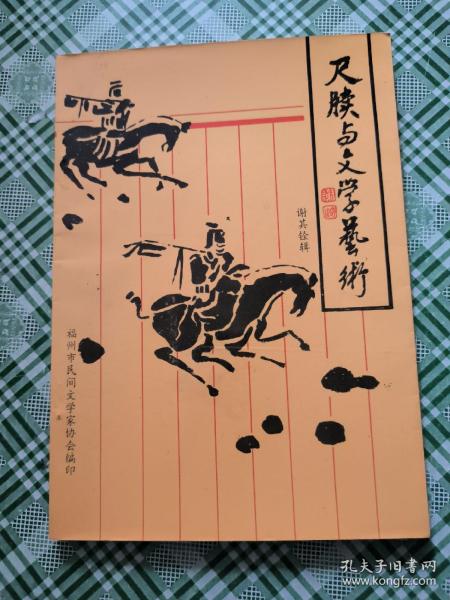 尺牍与文学藝術
谢其铨辑
福州市民间文学家协会编印
孔夫子旧书网
www.kongfz.com